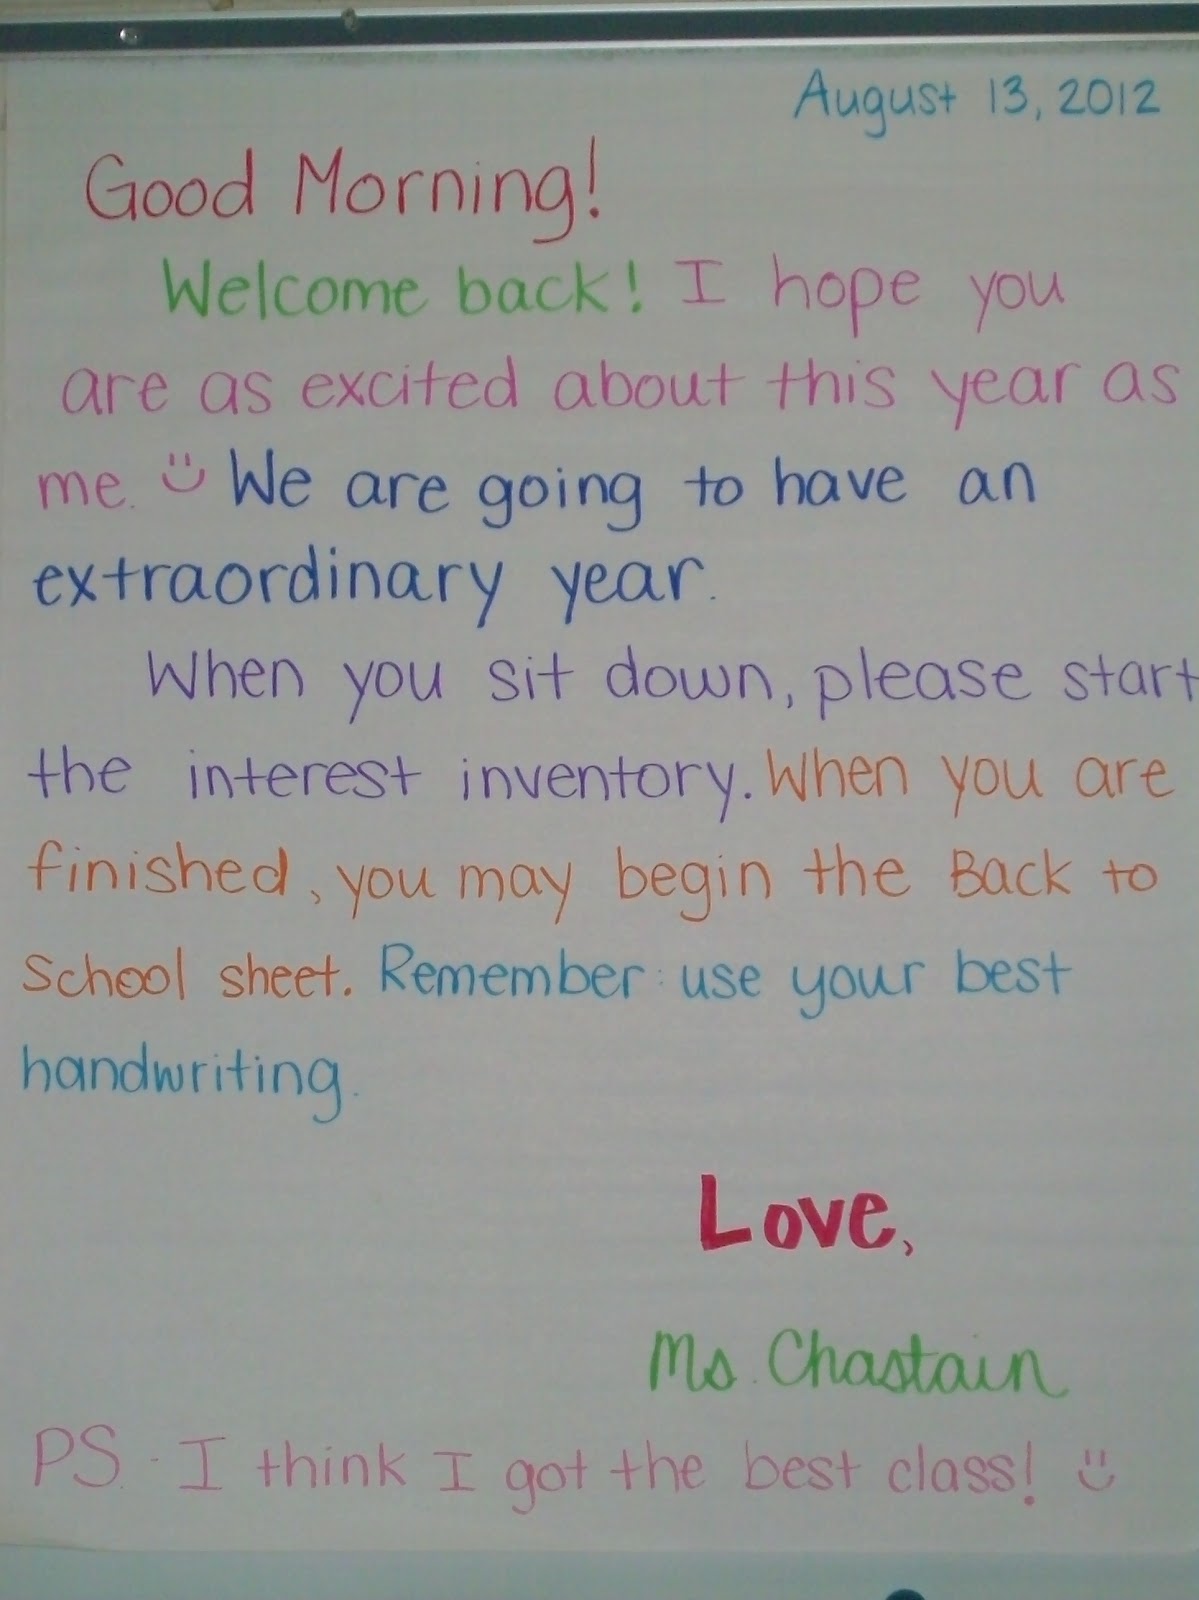 August 13, 2012
Good Morning!
Welcome back! I hope you
are as excited about this year as
me. We are going to have an
extraordinary year.
When you sit down, please start
the interest inventory. When you are
finished, you may begin the Back to
School sheet. Remember: use your best
handwriting.
Love,
Ms. Chastain
PS. - I think I got the best class!